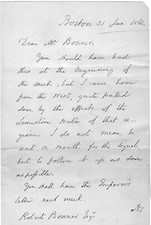 Boston 31 Jan 186
Dear Mr Bonner
You should have had
this at the beginning of
the week, but I came home
from the West, quite pulled
down by the effects of the
Limestone water of that
region. I do not mean to
wait a month for the sequel
but to follow it up as soon
as possible.
You shall have the
letter next week.
Robert Bonner Esq